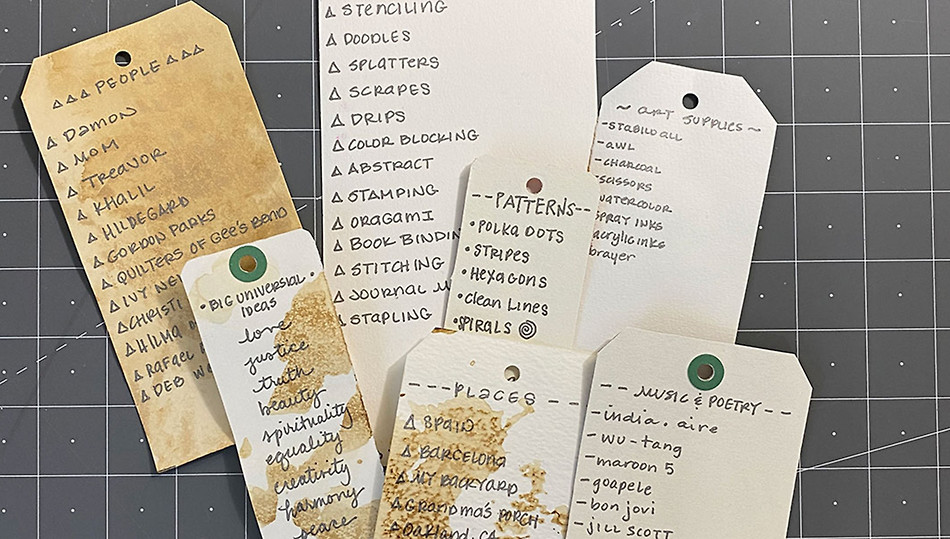 △△△ PEOPLE △△△
△ DAMON
△ MOM
△ TREAVOR
△ KHALIL
△ HILDEGARD
△ GORDON PARKS
△ QUILTERS OF GEE'S BEND
△ IVY
△ CHRISTI
△ HILMA
△ RAFAEL
△ DEB
• BIG UNIVERSAL •
IDEAS
love
justice
truth
beauty
spirituality
equality
creativity
harmony
peace
△ STENCILING
△ DOODLES
△ SPLATTERS
△ SCRAPES
△ DRIPS
△ COLOR BLOCKING
△ ABSTRACT
△ STAMPING
△ ORAGAMI
△ BOOK BINDIN
△ STITCHING
△ JOURNAL
△ STAPLING
--PATTERNS--
• POLKA DOTS
• STRIPES
• HEXAGONS
• Clean Lines
• SPIRALS
~ ART SUPPLIES ~
-STABILO ALL
-AWL
-CHARCOAL
-SCISSORS
WATERCOLOR
SPRAY INKS
acrylic inks
brayer
---PLACES --
△ SPAIN
△ BARCELONA
△ MY BACKYARD
△ GRANDMA'S PORCH
△ Oakland, CA
-- MUSIC & POETRY --
-india. aire
-wu-tang
-maroon 5
-goapele
-bon jovi
-JILL SCOTT